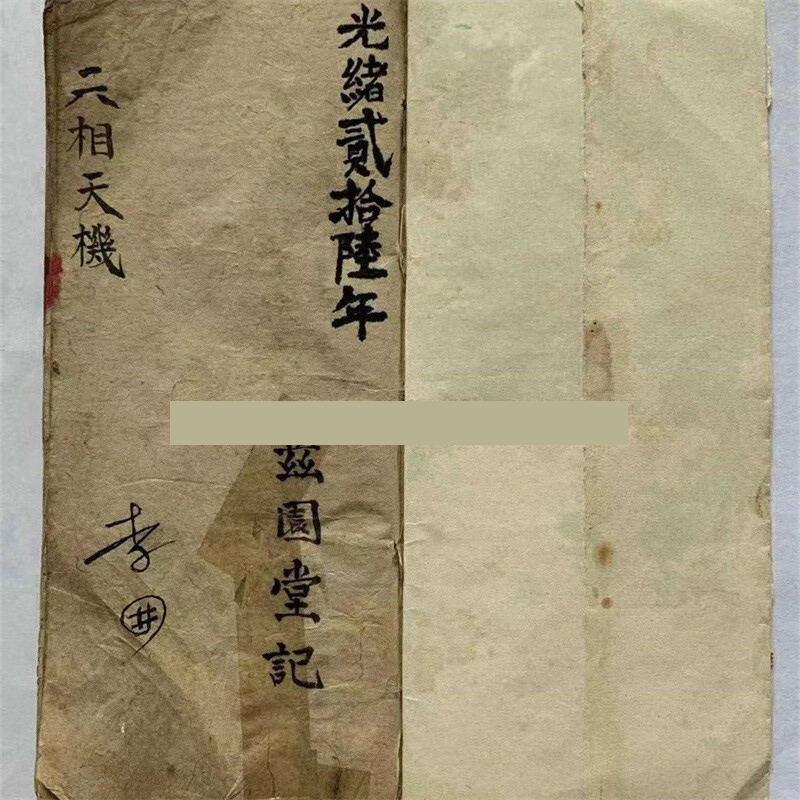 光緒貳拾陸年
茲園堂記
相天機
李
井